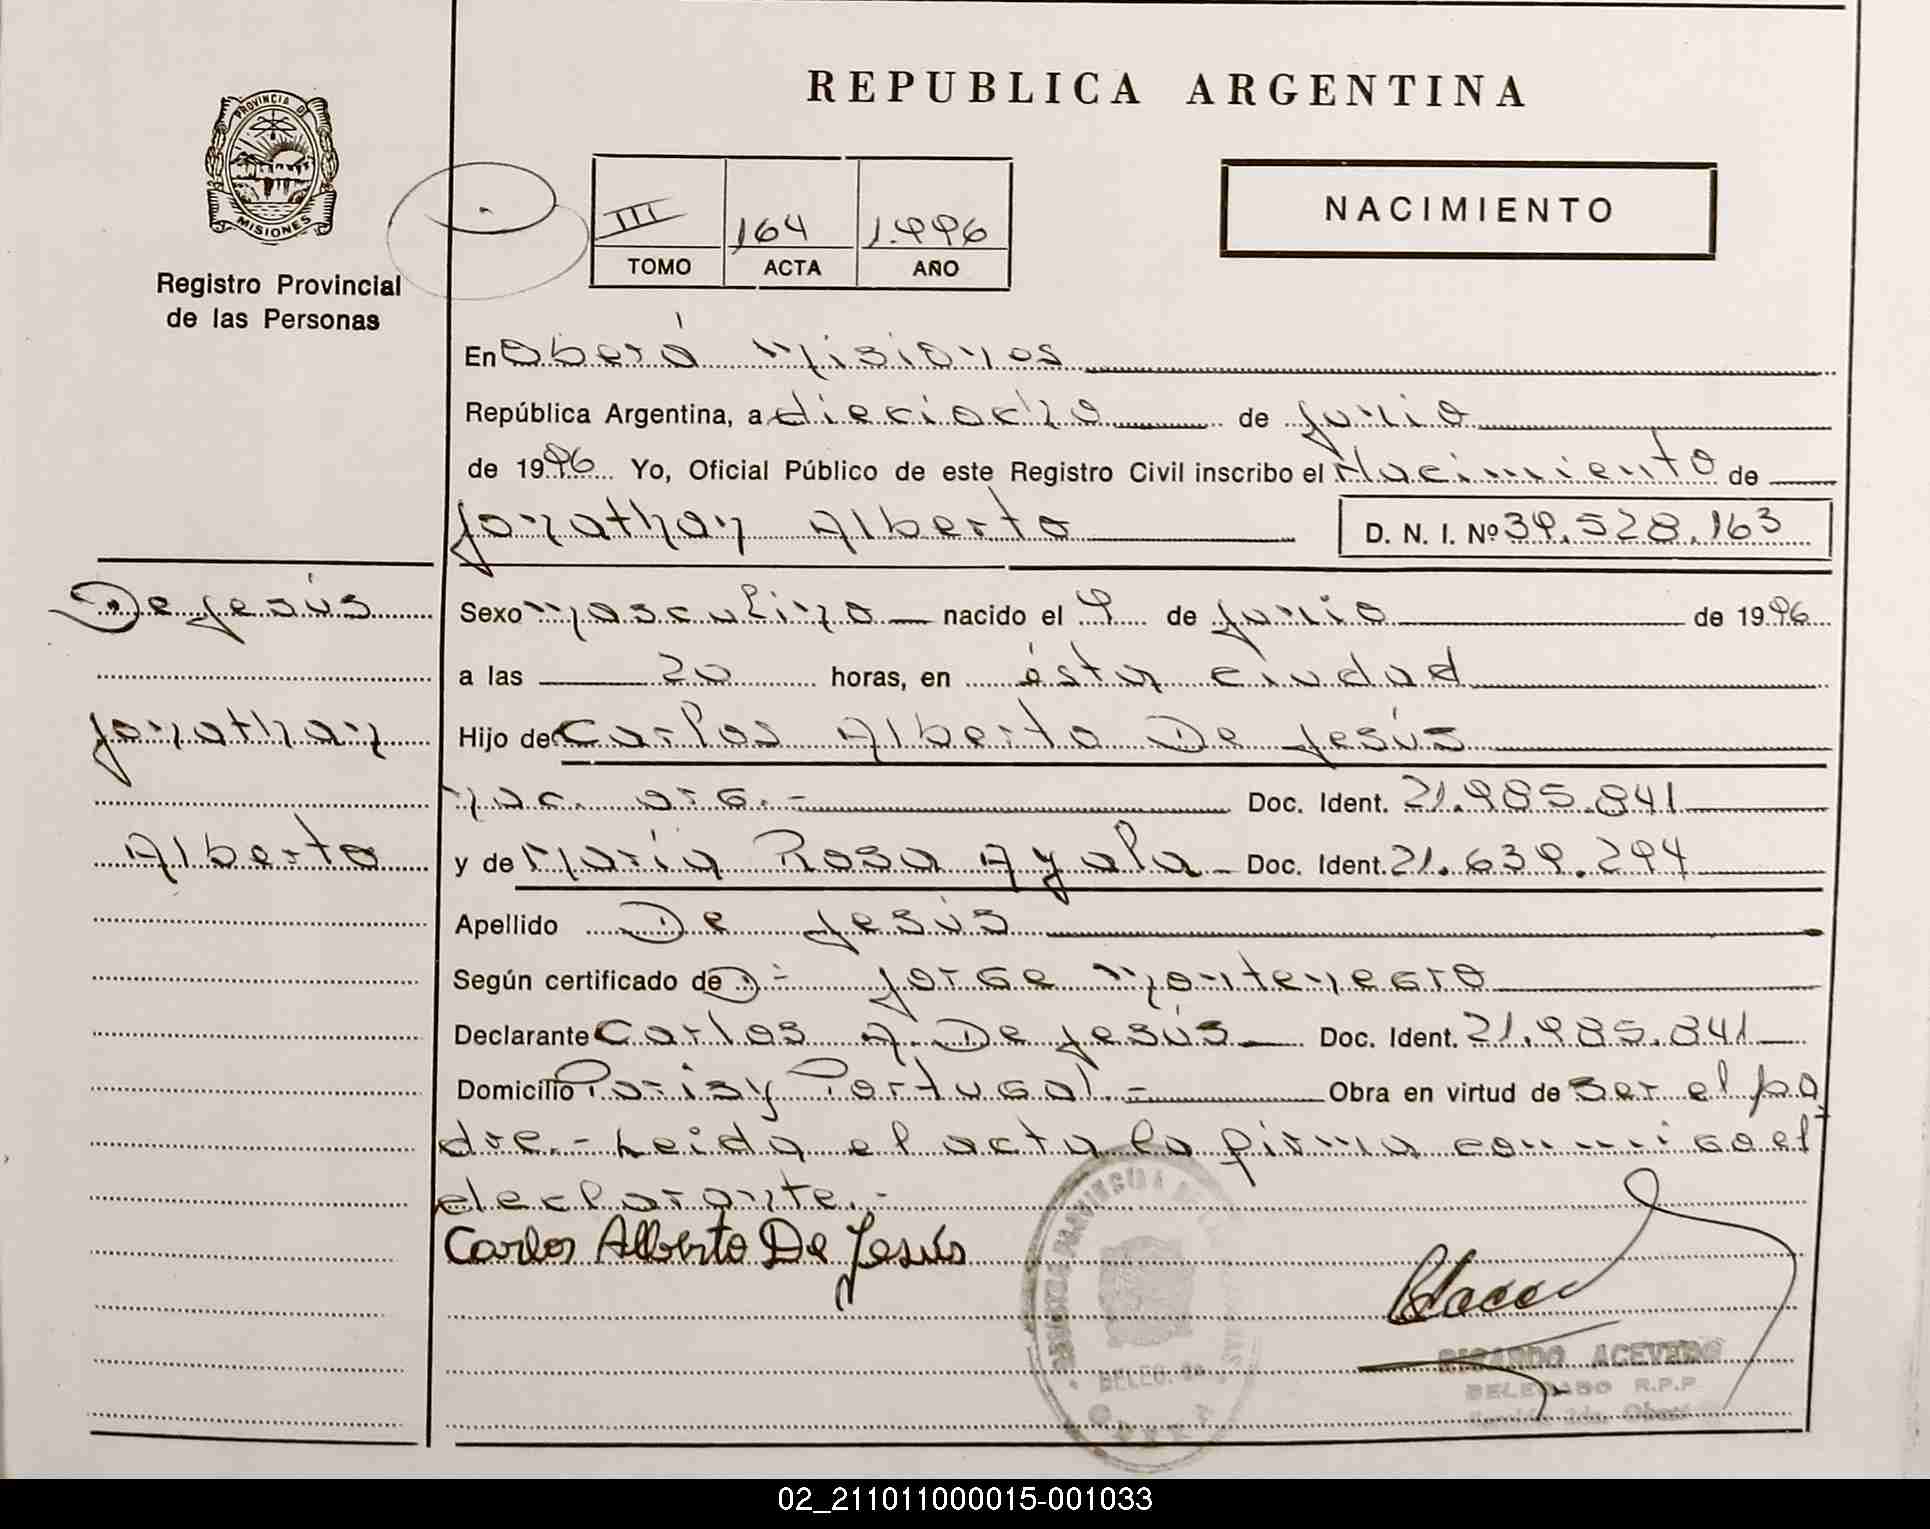 REPUBLICA ARGENTINA
PROVINCIA DE
MISIONES
Registro Provincial
de las Personas
III 164 1.996
TOMO ACTA AÑO
NACIMIENTO
En Oberá Misiones
República Argentina, a dieciocho de junio
de 1996 Yo, Oficial Público de este Registro Civil inscribo el Nacimiento de
Jonathan Alberto D. N. I. Nº 39.528.163
De Jesús
Jonathan
Alberto
Sexo masculino nacido el 9 de junio de 1996
a las 20 horas, en ésta ciudad
Hijo de Carlos Alberto De Jesús
nac. arg.- Doc. Ident. 21.985.841
y de María Rosa Ayala Doc. Ident. 21.639.294
Apellido De Jesús
Según certificado de D.- Jorge Montenegro
Declarante Carlos A. De Jesús Doc. Ident. 21.985.841
Domicilio París y Portugal.- Obra en virtud de ser el pa
dre.- Leida el acta la firma conmigo el
declarante.-
Carlos Alberto De Jesús
RICARDO ACEVEDO
DELEGADO R.P.P.
02_211011000015-001033